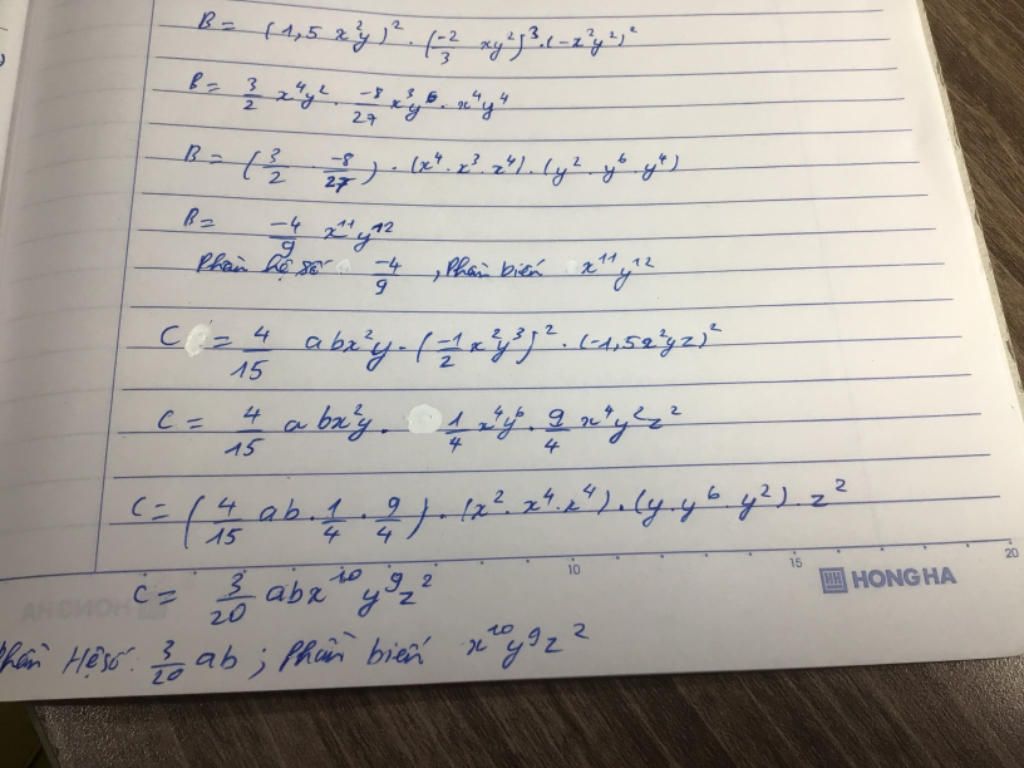 B = (1,5 x²y)² . (-2/3 xy²)³ . (-x²y²)²
B = 3/2 x⁴y² . -8/27 x³y⁶ . x⁴y⁴
B = (3/2 . -8/27) . (x⁴ . x³ . x⁴) . (y² . y⁶ . y⁴)
B = -4/9 x¹¹y¹²
Phần hệ số -4/9 , Phần biến x¹¹y¹²
C = 4/15 abx²y . (-1/2 x²y³)² . (-1,5x²yz)²
C = 4/15 abx²y . 1/4 x⁴y⁶ . 9/4 x⁴y²z²
C = (4/15 ab . 1/4 . 9/4) . (x² . x⁴ . x⁴) . (y . y⁶ . y²) . z²
10 15 20
HH HONG HA
C = 3/20 abx¹⁰y⁹z²
Phần Hệ số: 3/20 ab ; Phần biến x¹⁰y⁹z²